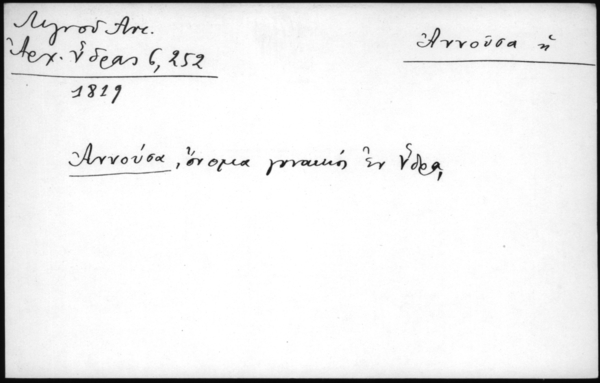 Λιγνοῦ Αντ.
Ἀρχ. Ὕδρας 6, 252
1819
Ἀννοῦσα ἡ
Ἀννούσα, ὄνομα γυναικός ἐν Ὕδρᾳ